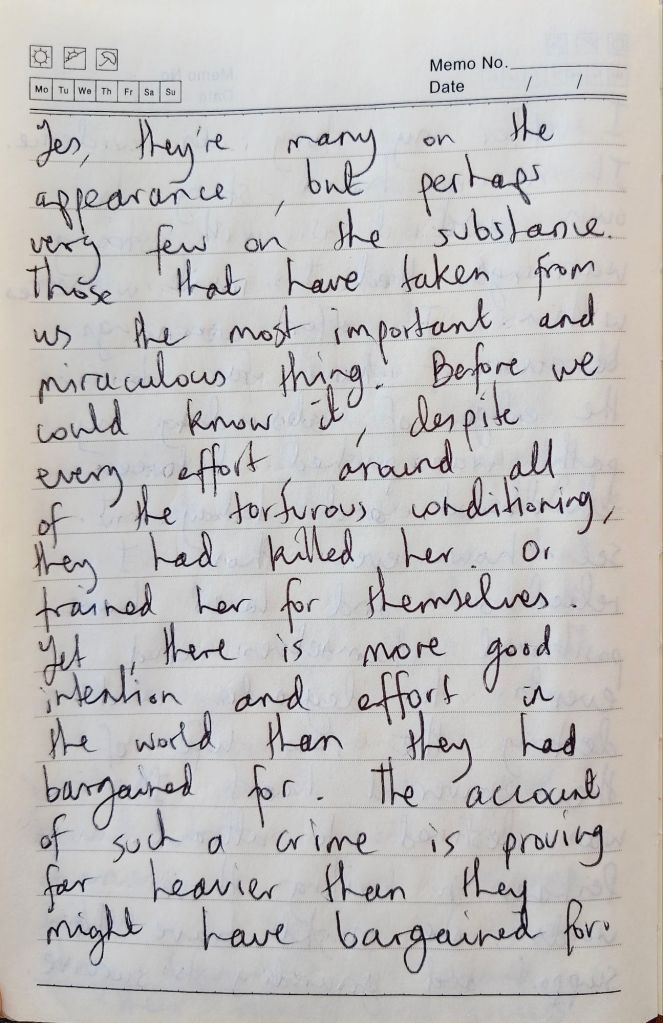 Memo No.
Mo Tu We Th Fr Sa Su
Date / /
Yes, they're many on the
appearance, but perhaps
very few on the substance.
Those that have taken from
us the most important and
miraculous thing. Before we
could know it, despite
every effort, around all
of the torturous conditioning,
they had killed her. Or
trained her for themselves.
Yet, there is more good
intention and effort in
the world than they had
bargained for. The account
of such a crime is proving
far heavier than they
might have bargained for.